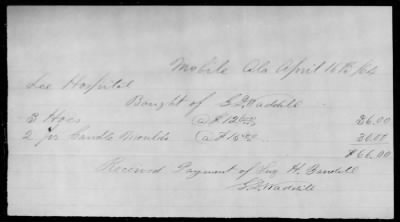 Mobile Ala April 16th /64
Lee Hospital
Bought of S. Waddill
3 Hoes @ $12.00 36.00
2 pr Candle Moulds @ $15.00 30.00
$66.00
Received Payment of Surg H.
S. Waddill